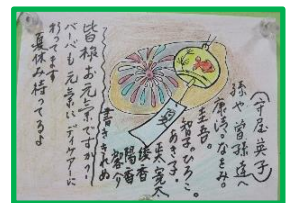 (守屋英子)
孫や曽孫達へ
康浩。なをみ。
圭吾。
智子。ひろこ。
あさ子。
正太 寛太
綾香
陽香
啓介
書ききれぬ
皆様お元気ですか？
バーバも元気にデイケアーに
行ってます
夏休み待ってるよ